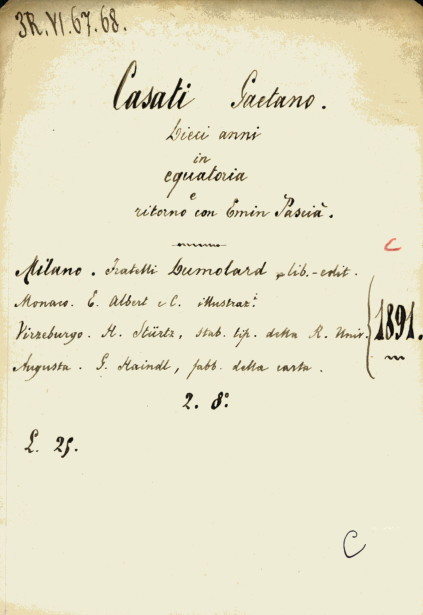 3R.VI.67.68.
Casati Gaetano.
Dieci anni
in
equatoria
e
ritorno con Emin Pascià.
C
Milano. Fratelli Dumolard, lib.-edit.
Monaco. E. Albert e C. illustraz.i
Virzeburgo. H. Stürtz, stab. tip. della R. Univ.
Augusta. G. Haindl, fabb. della carta.
1891.
2. 8:
L. 25.
C